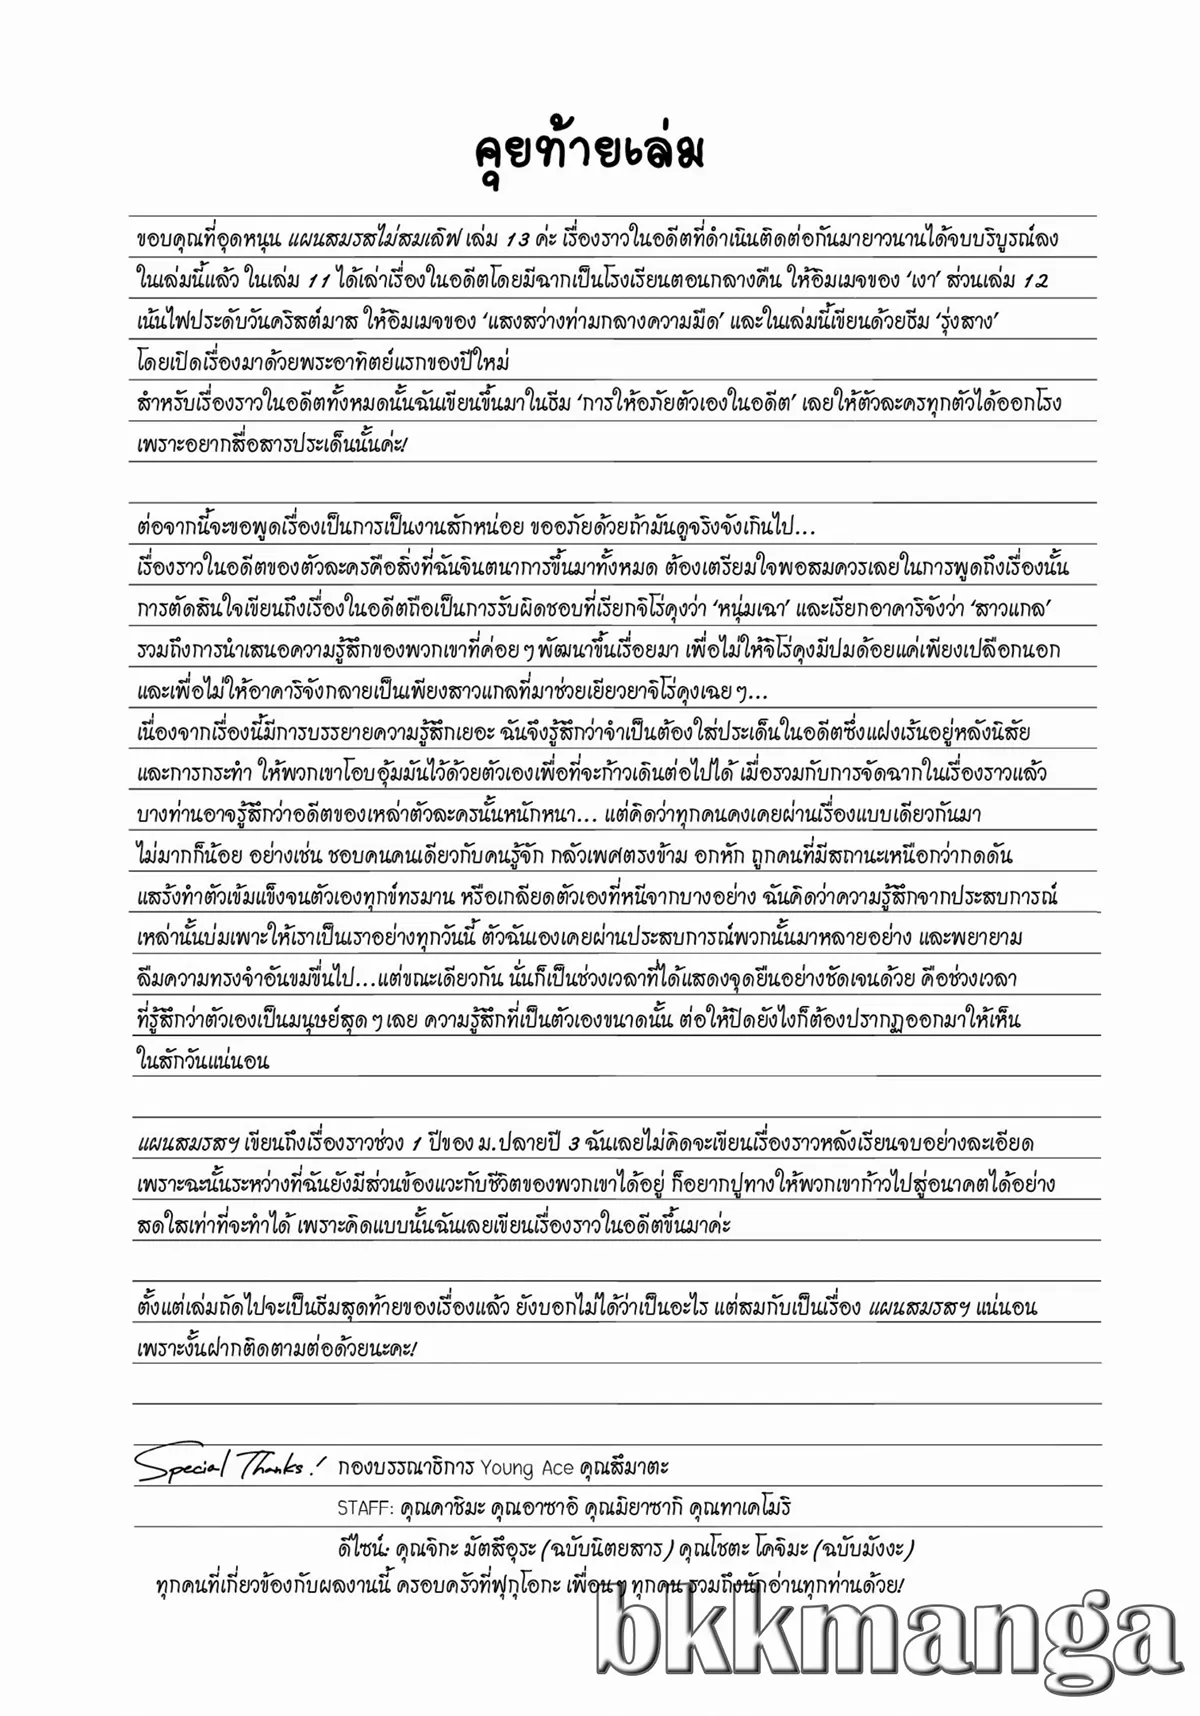 คุยท้ายเล่ม
ขอบคุณที่อุดหนุน แผนสมรสไม่สมเลิฟ เล่ม 13 ค่ะ เรื่องราวในอดีตที่ดำเนินติดต่อกันมายาวนานได้จบบริบูรณ์ลง
ในเล่มนี้แล้ว ในเล่ม 11 ได้เล่าเรื่องในอดีตโดยมีฉากเป็นโรงเรียนตอนกลางคืน ให้อิมเมจของ ‘เงา’ ส่วนเล่ม 12
เน้นไฟประดับวันคริสต์มาส ให้อิมเมจของ ‘แสงสว่างท่ามกลางความมืด’ และในเล่มนี้เขียนด้วยธีม ‘รุ่งสาง’
โดยเปิดเรื่องมาด้วยพระอาทิตย์แรกของปีใหม่
สำหรับเรื่องราวในอดีตทั้งหมดนั้นฉันเขียนขึ้นมาในธีม ‘การให้อภัยตัวเองในอดีต’ เลยให้ตัวละครทุกตัวได้ออกโรง
เพราะอยากสื่อสารประเด็นนั้นค่ะ!
ต่อจากนี้จะขอพูดเรื่องเป็นการเป็นงานสักหน่อย ขออภัยด้วยถ้ามันดูจริงจังเกินไป...
เรื่องราวในอดีตของตัวละครคือสิ่งที่ฉันจินตนาการขึ้นมาทั้งหมด ต้องเตรียมใจพอสมควรเลยในการพูดถึงเรื่องนั้น
การตัดสินใจเขียนถึงเรื่องในอดีตถือเป็นการรับผิดชอบที่เรียกจิโร่คุงว่า ‘หนุ่มเฉา’ และเรียกอาคาริจังว่า ‘สาวแกล’
รวมถึงการนำเสนอความรู้สึกของพวกเขาที่ค่อยๆ พัฒนาขึ้นเรื่อยมา เพื่อไม่ให้จิโร่คุงมีปมด้อยแค่เพียงเปลือกนอก
และเพื่อไม่ให้อาคาริจังกลายเป็นเพียงสาวแกลที่มาช่วยเยียวยาจิโร่คุงเฉยๆ...
เนื่องจากเรื่องนี้มีการบรรยายความรู้สึกเยอะ ฉันจึงรู้สึกว่าจำเป็นต้องใส่ประเด็นในอดีตซึ่งแฝงเร้นอยู่หลังนิสัย
และการกระทำ ให้พวกเขาโอบอุ้มมันไว้ด้วยตัวเองเพื่อที่จะก้าวเดินต่อไปได้ เมื่อรวมกับการจัดฉากในเรื่องราวแล้ว
บางท่านอาจรู้สึกว่าอดีตของเหล่าตัวละครนั้นหนักหนา... แต่คิดว่าทุกคนคงเคยผ่านเรื่องแบบเดียวกันมา
ไม่มากก็น้อย อย่างเช่น ชอบคนคนเดียวกับคนรู้จัก กลัวเพศตรงข้าม อกหัก ถูกคนที่มีสถานะเหนือกว่ากดดัน
แสร้งทำตัวเข้มแข็งจนตัวเองทุกข์ทรมาน หรือเกลียดตัวเองที่หนีจากบางอย่าง ฉันคิดว่าความรู้สึกจากประสบการณ์
เหล่านั้นบ่มเพาะให้เราเป็นเราอย่างทุกวันนี้ ตัวฉันเองเคยผ่านประสบการณ์พวกนั้นมาหลายอย่าง และพยายาม
ลืมความทรงจำอันขมขื่นไป...แต่ขณะเดียวกัน นั่นก็เป็นช่วงเวลาที่ได้แสดงจุดยืนอย่างชัดเจนด้วย คือช่วงเวลา
ที่รู้สึกว่าตัวเองเป็นมนุษย์สุดๆ เลย ความรู้สึกที่เป็นตัวเองขนาดนั้น ต่อให้ปิดยังไงก็ต้องปรากฏออกมาให้เห็น
ในสักวันแน่นอน
แผนสมรสฯ เขียนถึงเรื่องราวช่วง 1 ปีของ ม.ปลายปี 3 ฉันเลยไม่คิดจะเขียนเรื่องราวหลังเรียนจบอย่างละเอียด
เพราะฉะนั้นระหว่างที่ฉันยังมีส่วนข้องแวะกับชีวิตของพวกเขาได้อยู่ ก็อยากปูทางให้พวกเขาก้าวไปสู่อนาคตได้อย่าง
สดใสเท่าที่จะทำได้ เพราะคิดแบบนั้นฉันเลยเขียนเรื่องราวในอดีตขึ้นมาค่ะ
ตั้งแต่เล่มถัดไปจะเป็นธีมสุดท้ายของเรื่องแล้ว ยังบอกไม่ได้ว่าเป็นอะไร แต่สมกับเป็นเรื่อง แผนสมรสฯ แน่นอน
เพราะงั้นฝากติดตามต่อด้วยนะคะ!
Special Thanks! กองบรรณาธิการ Young Ace คุณสึมาตะ
STAFF: คุณคาชิมะ คุณอาซาอิ คุณมิยาซากิ คุณทาเคโมริ
ดีไซน์: คุณจิกะ มัตสึอุระ (ฉบับนิตยสาร) คุณโชตะ โคจิมะ (ฉบับมังงะ)
ทุกคนที่เกี่ยวข้องกับผลงานนี้ ครอบครัวที่ฟุกุโอกะ เพื่อนๆ ทุกคน รวมถึงนักอ่านทุกท่านด้วย!
bkkmanga